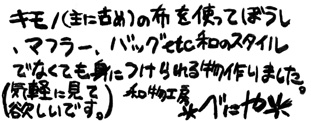 キモノ(主に古め)の布を使ってぼうし
、マフラー、バッグetc和のスタイル
でなくても身につけられる物作りました。
(気軽に見て
欲しいです。) 和物工房 *べにや*